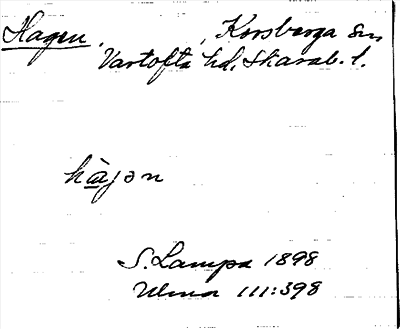 Hagen, , Korsberga sn
Vartofta hd, Skarab. l.
hàjən
S. Lampa 1898
Ulma 111:398